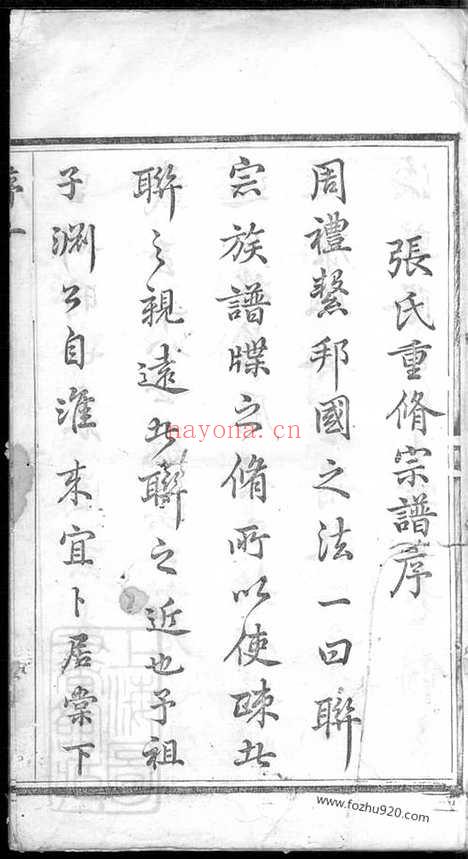 張氏重脩宗譜序
周禮繫邦國之法一曰聯
宗族譜牒之脩所以使疎者
聯之親遠者聯之近也予祖
子淵公自淮來宜卜居棠下
序一
nayona.cn
www.fozhu920.com